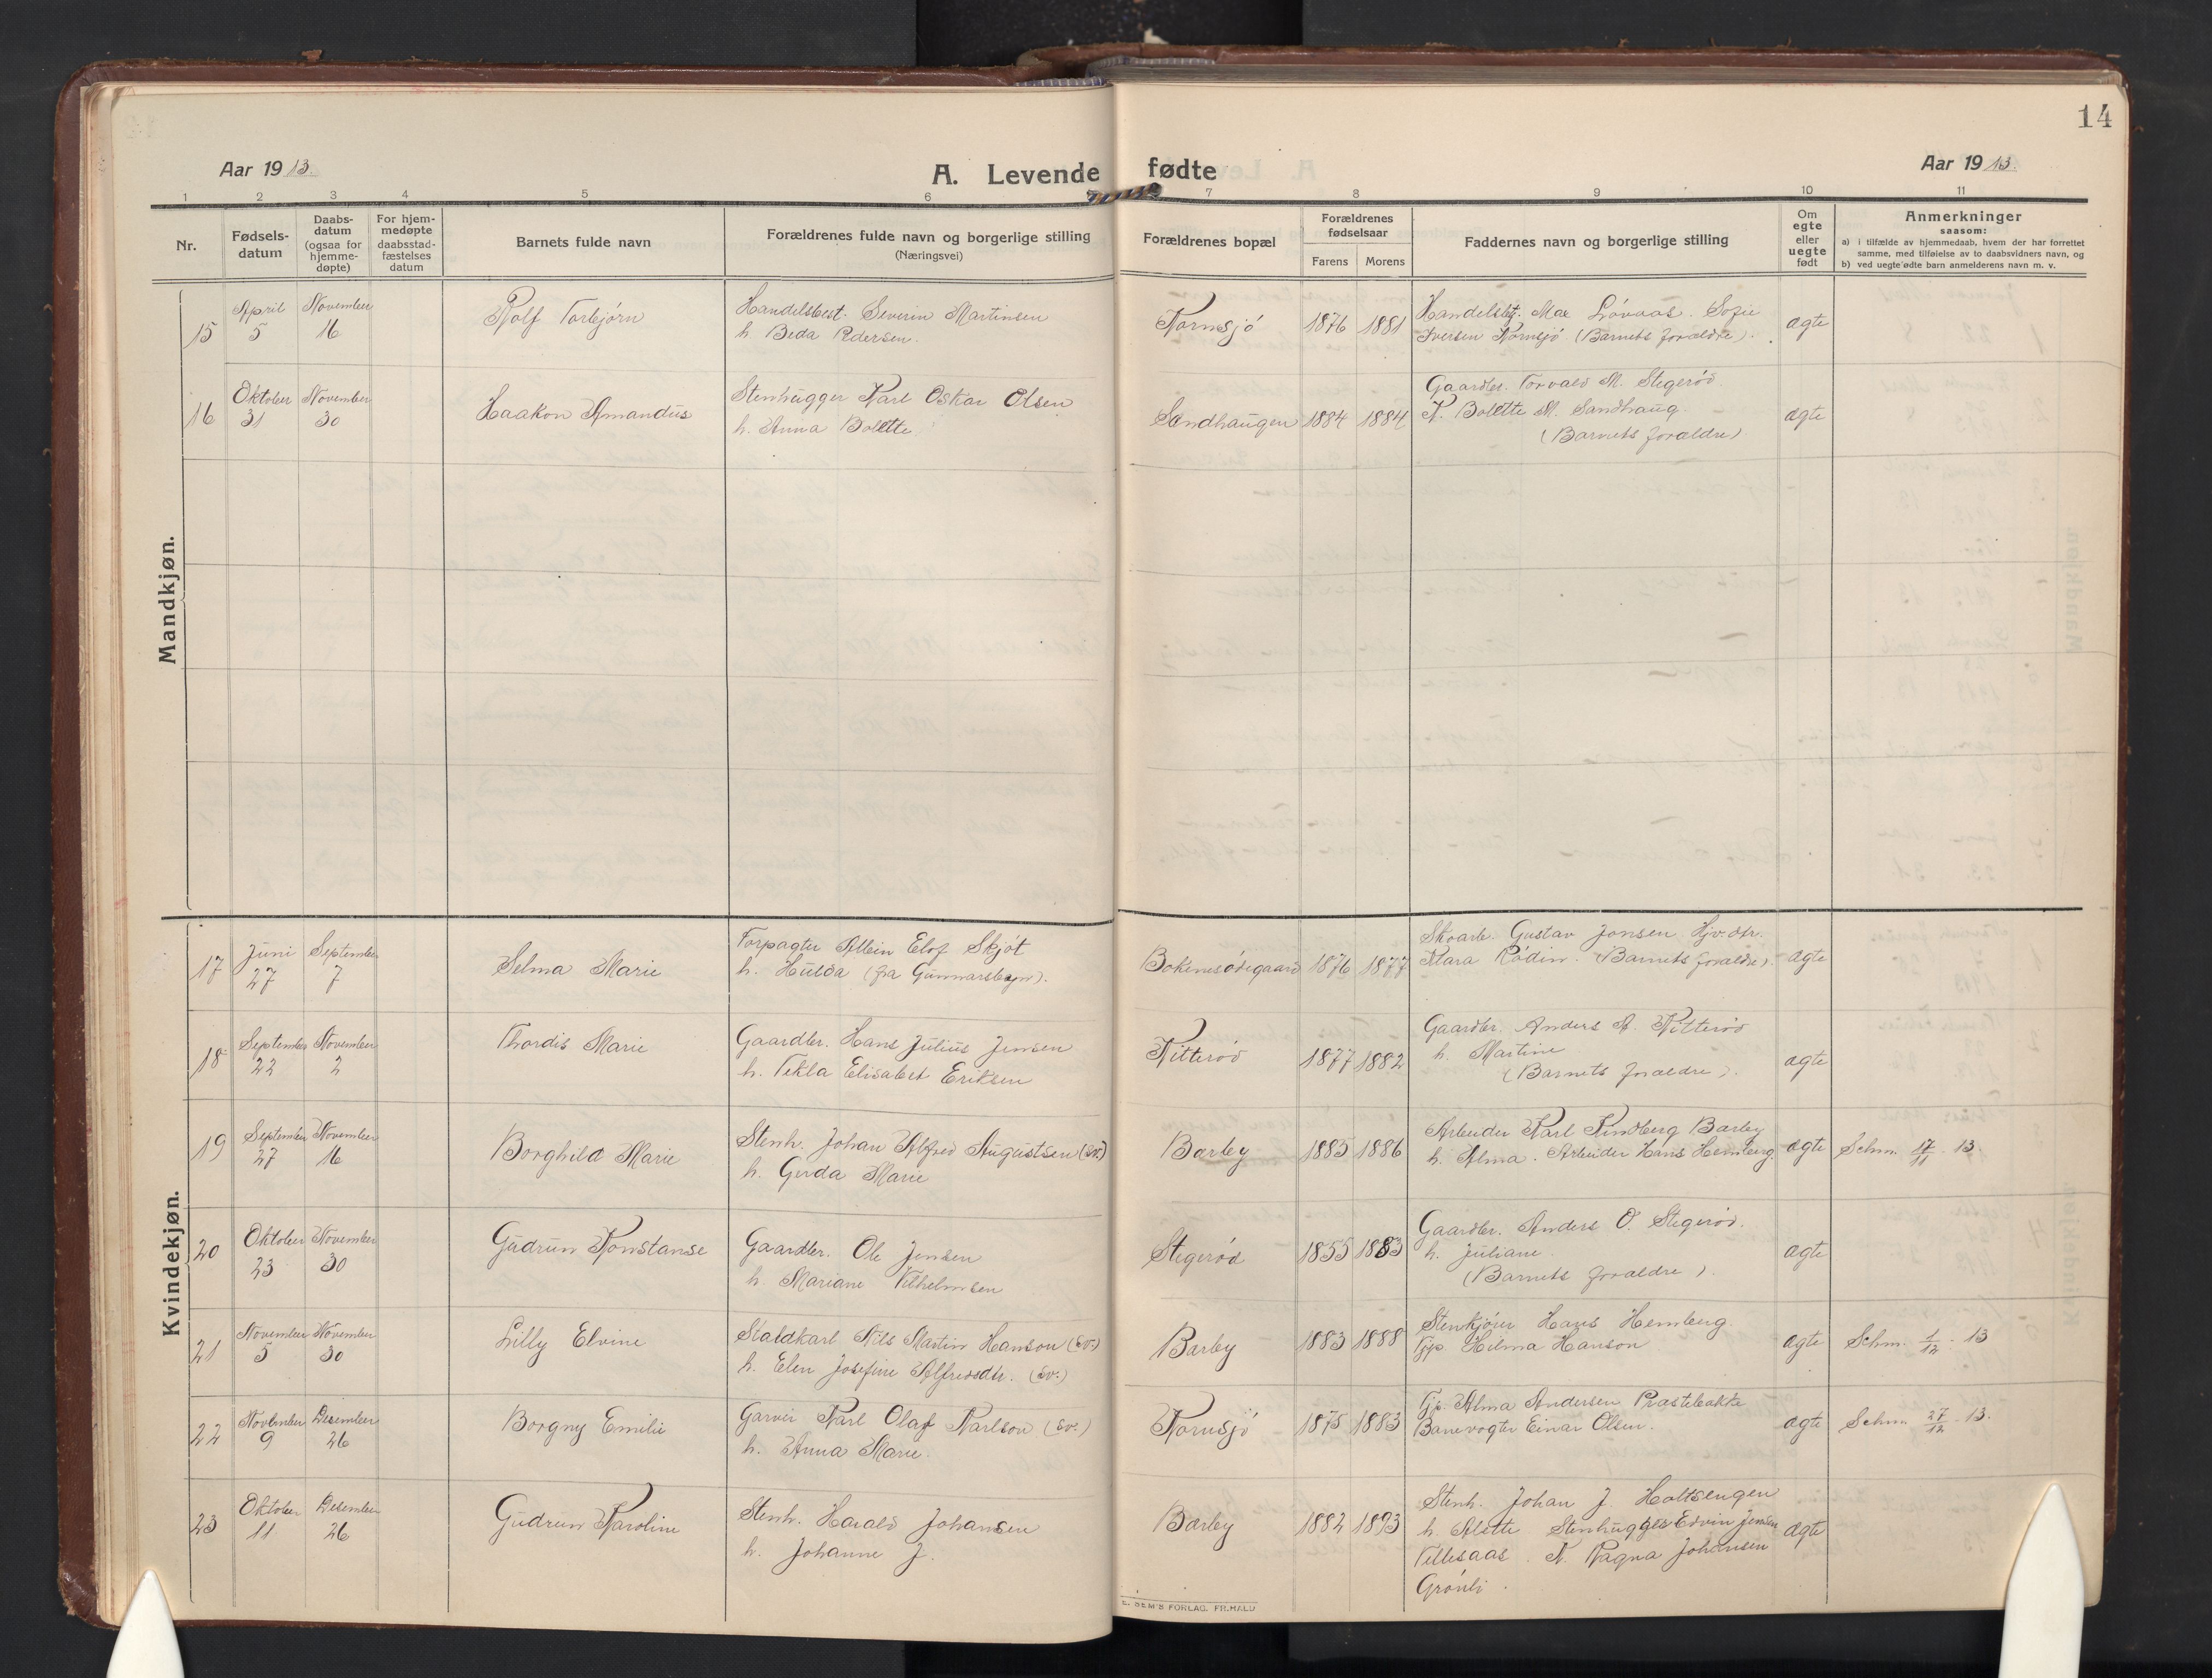 14
Aar 1913.
A. Levende fødte
Aar 1913.
1 2 3 4 5 6 7 8 9 10 11
Nr.
Fødsels-
datum
Daabs-
datum
(ogsaa for
hjemme-
døpte)
For hjem-
medøpte
daabsstad-
fæstelses
datum
Barnets fulde navn
Forældrenes fulde navn og borgerlige stilling
(Næringsvei)
Forældrenes bopæl
Forældrenes
fødselsaar
Farens Morens
Faddernes navn og borgerlige stilling
Om
egte
eller
uegte
født
Anmerkninger
saasom:
a) i tilfælde av hjemmedaab, hvem der har forrettet
samme, med tilføielse av to daabsvidners navn, og
b) ved uegte fødte barn anmelderens navn m. v.
Mandkjøn.
15
April
5
November
16
Rolf Torbjørn
Handelsbest. Severin Martinsen
h. Beda Pedersen.
Kornsjø
1876 1881
Handelsbtj. Max Løvaas. Sofie
Iversen Kornsjø (Barnets forældre).
ægte
16
Oktober
31
November
30
Haakon Amandus
Stenhugger Karl Oskar Olsen
h. Anna Bolette
Sandhaugen
1884 1884
Gaardbr. Torvald M. Stegerød
K. Bolette M. Sandhaug
(Barnets forældre)
ægte
Kvindekjøn.
17
Juni
27
September
7
Selma Marie
Forpagter Albin Elof Skjøt
h. Hulda (fra Gunnarsbyn).
Bokerødegaard
1876 1877
Skoarb. Gustav Jonsen Hjv. dtr.
Klara Rødin. (Barnets forældre).
ægte
18
September
22
November
2
Thordis Marie
Gaardbr. Hans Julius Jensen
h. Tekla Elisabet Eriksen
Kitterød
1877 1882
Gaardbr. Anders A. Kitterød
h. Martine
(Barnets forældre).
ægte
19
September
27
November
16
Borghild Marie
Stenh. Johan Alfred Augustsen (sv.)
h. Gerda Marie
Barby
1885 1886
Arbeider Karl Lindberg Barby
h. Alma. Arbeider Hans Hemberg.
ægte
Schm. 17/11 - 13.
20
Oktober
23
November
30
Gudrun Konstanse
Gaardbr. Ole Jensen
h. Mariane Vilhelmsen
Stegerød
1855 1883
Gaardbr. Anders O. Stegerød.
h. Juliane.
(Barnets forældre).
ægte
21
November
5
November
30
Lilly Elvine
Staldkarl Nils Martin Hanson (sv.)
h. Elen Josefine Alfredsdtr. (sv.)
Barby
1883 1888
Stenkjører Hans Hemberg.
Tjp. Hilma Hanson
ægte
Schm. 1/12 - 13
22
November
9
Desember
26
Borgny Emilie
Garver Karl Olaf Karlson (sv.)
h. Anna Marie
Kornsjø
1875 1883
Tjp. Alma Andersen Præstebakke
Banevogter Einar Olsen.
ægte
Schm. 27/12 - 13.
23
Oktober
11
Desember
26
Gudrun Karoline
Stenh. Harald Johansen
h. Johanne J.
Barby
1882 1893
Stenh. Johan J. Holtsengen
h. Alette Stenhugger Edvin Jensen
Tillesaas. K. Ragna Johansen
Grønli.
ægte
E. SEM'S FORLAG. FR.HALD